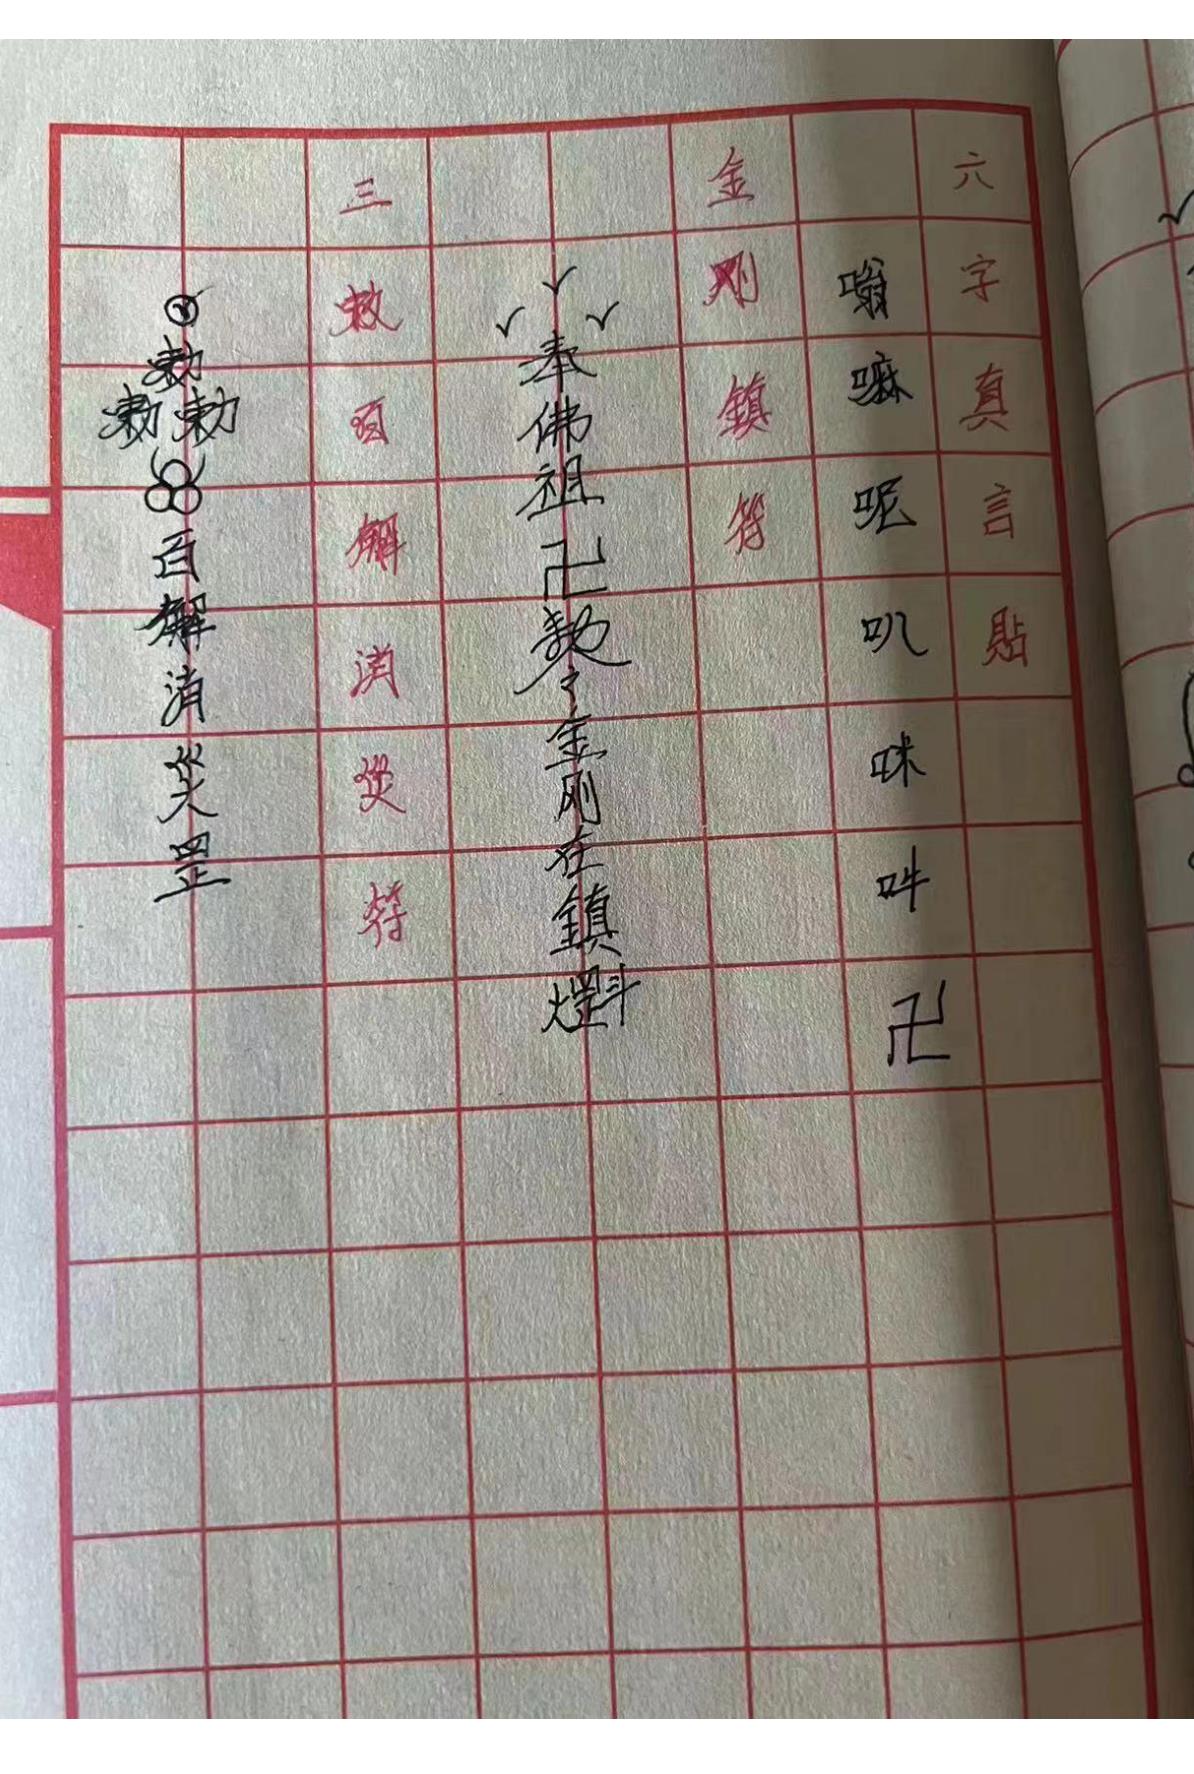 六字真言貼
嗡嘛呢叭咪吽卍
金刚鎮符
奉佛祖卍勅令金刚在鎮煞罡
三敕百解消災符
勅勅勅百解消災罡